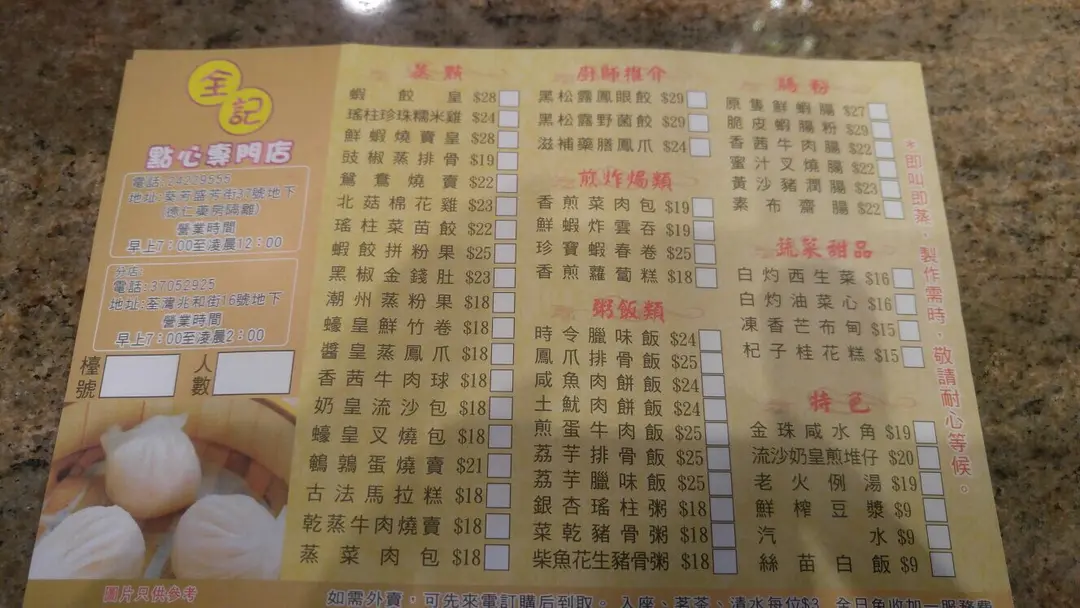 全記
點心專門店
電話:24209555
地址:葵芳盛芳街37號地下
(德仁藥房隔離)
營業時間
早上7:00至凌晨12:00
分店:
電話:37052925
地址:荃灣兆和街16號地下
營業時間
早上7:00至凌晨2:00
檯號
人數
圖片只供參考
蒸點
蝦餃皇 $28
瑤柱珍珠糯米雞 $24
鮮蝦燒賣皇 $28
豉椒蒸排骨 $19
鴛鴦燒賣 $22
北菇棉花雞 $23
瑤柱菜苗餃 $22
蝦餃拼粉果 $25
黑椒金錢肚 $23
潮州蒸粉果 $18
蠔皇鮮竹卷 $18
醬皇蒸鳳爪 $18
香茜牛肉球 $18
奶皇流沙包 $18
蠔皇叉燒包 $18
鵪鶉蛋燒賣 $21
古法馬拉糕 $18
乾蒸牛肉燒賣 $18
蒸菜肉包 $18
廚師推介
黑松露鳳眼餃 $29
黑松露野菌餃 $29
滋補藥膳鳳爪 $24
煎炸焗類
香煎菜肉包 $19
鮮蝦炸雲吞 $19
珍寶蝦春卷 $25
香煎蘿蔔糕 $18
粥飯類
時令臘味飯 $24
鳳爪排骨飯 $25
咸魚肉餅飯 $24
土魷肉餅飯 $24
煎蛋牛肉飯 $25
荔芋排骨飯 $25
荔芋臘味飯 $25
銀杏瑤柱粥 $18
菜乾豬骨粥 $18
柴魚花生豬骨粥 $18
腸粉
原隻鮮蝦腸 $27
脆皮蝦腸粉 $29
香茜牛肉腸 $22
蜜汁叉燒腸 $22
黃沙豬潤腸 $23
素布齋腸 $22
蔬菜甜品
白灼西生菜 $16
白灼油菜心 $16
凍香芒布甸 $15
杞子桂花糕 $15
特色
金珠咸水角 $19
流沙奶皇煎堆仔 $20
老火例湯 $19
鮮榨豆漿 $9
汽水 $9
絲苗白飯 $9
*即叫即蒸,製作需時,敬請耐心等候。
如需外賣,可先來電訂購后到取。入座、茗茶、清水每位$3,全日免收加一服務費